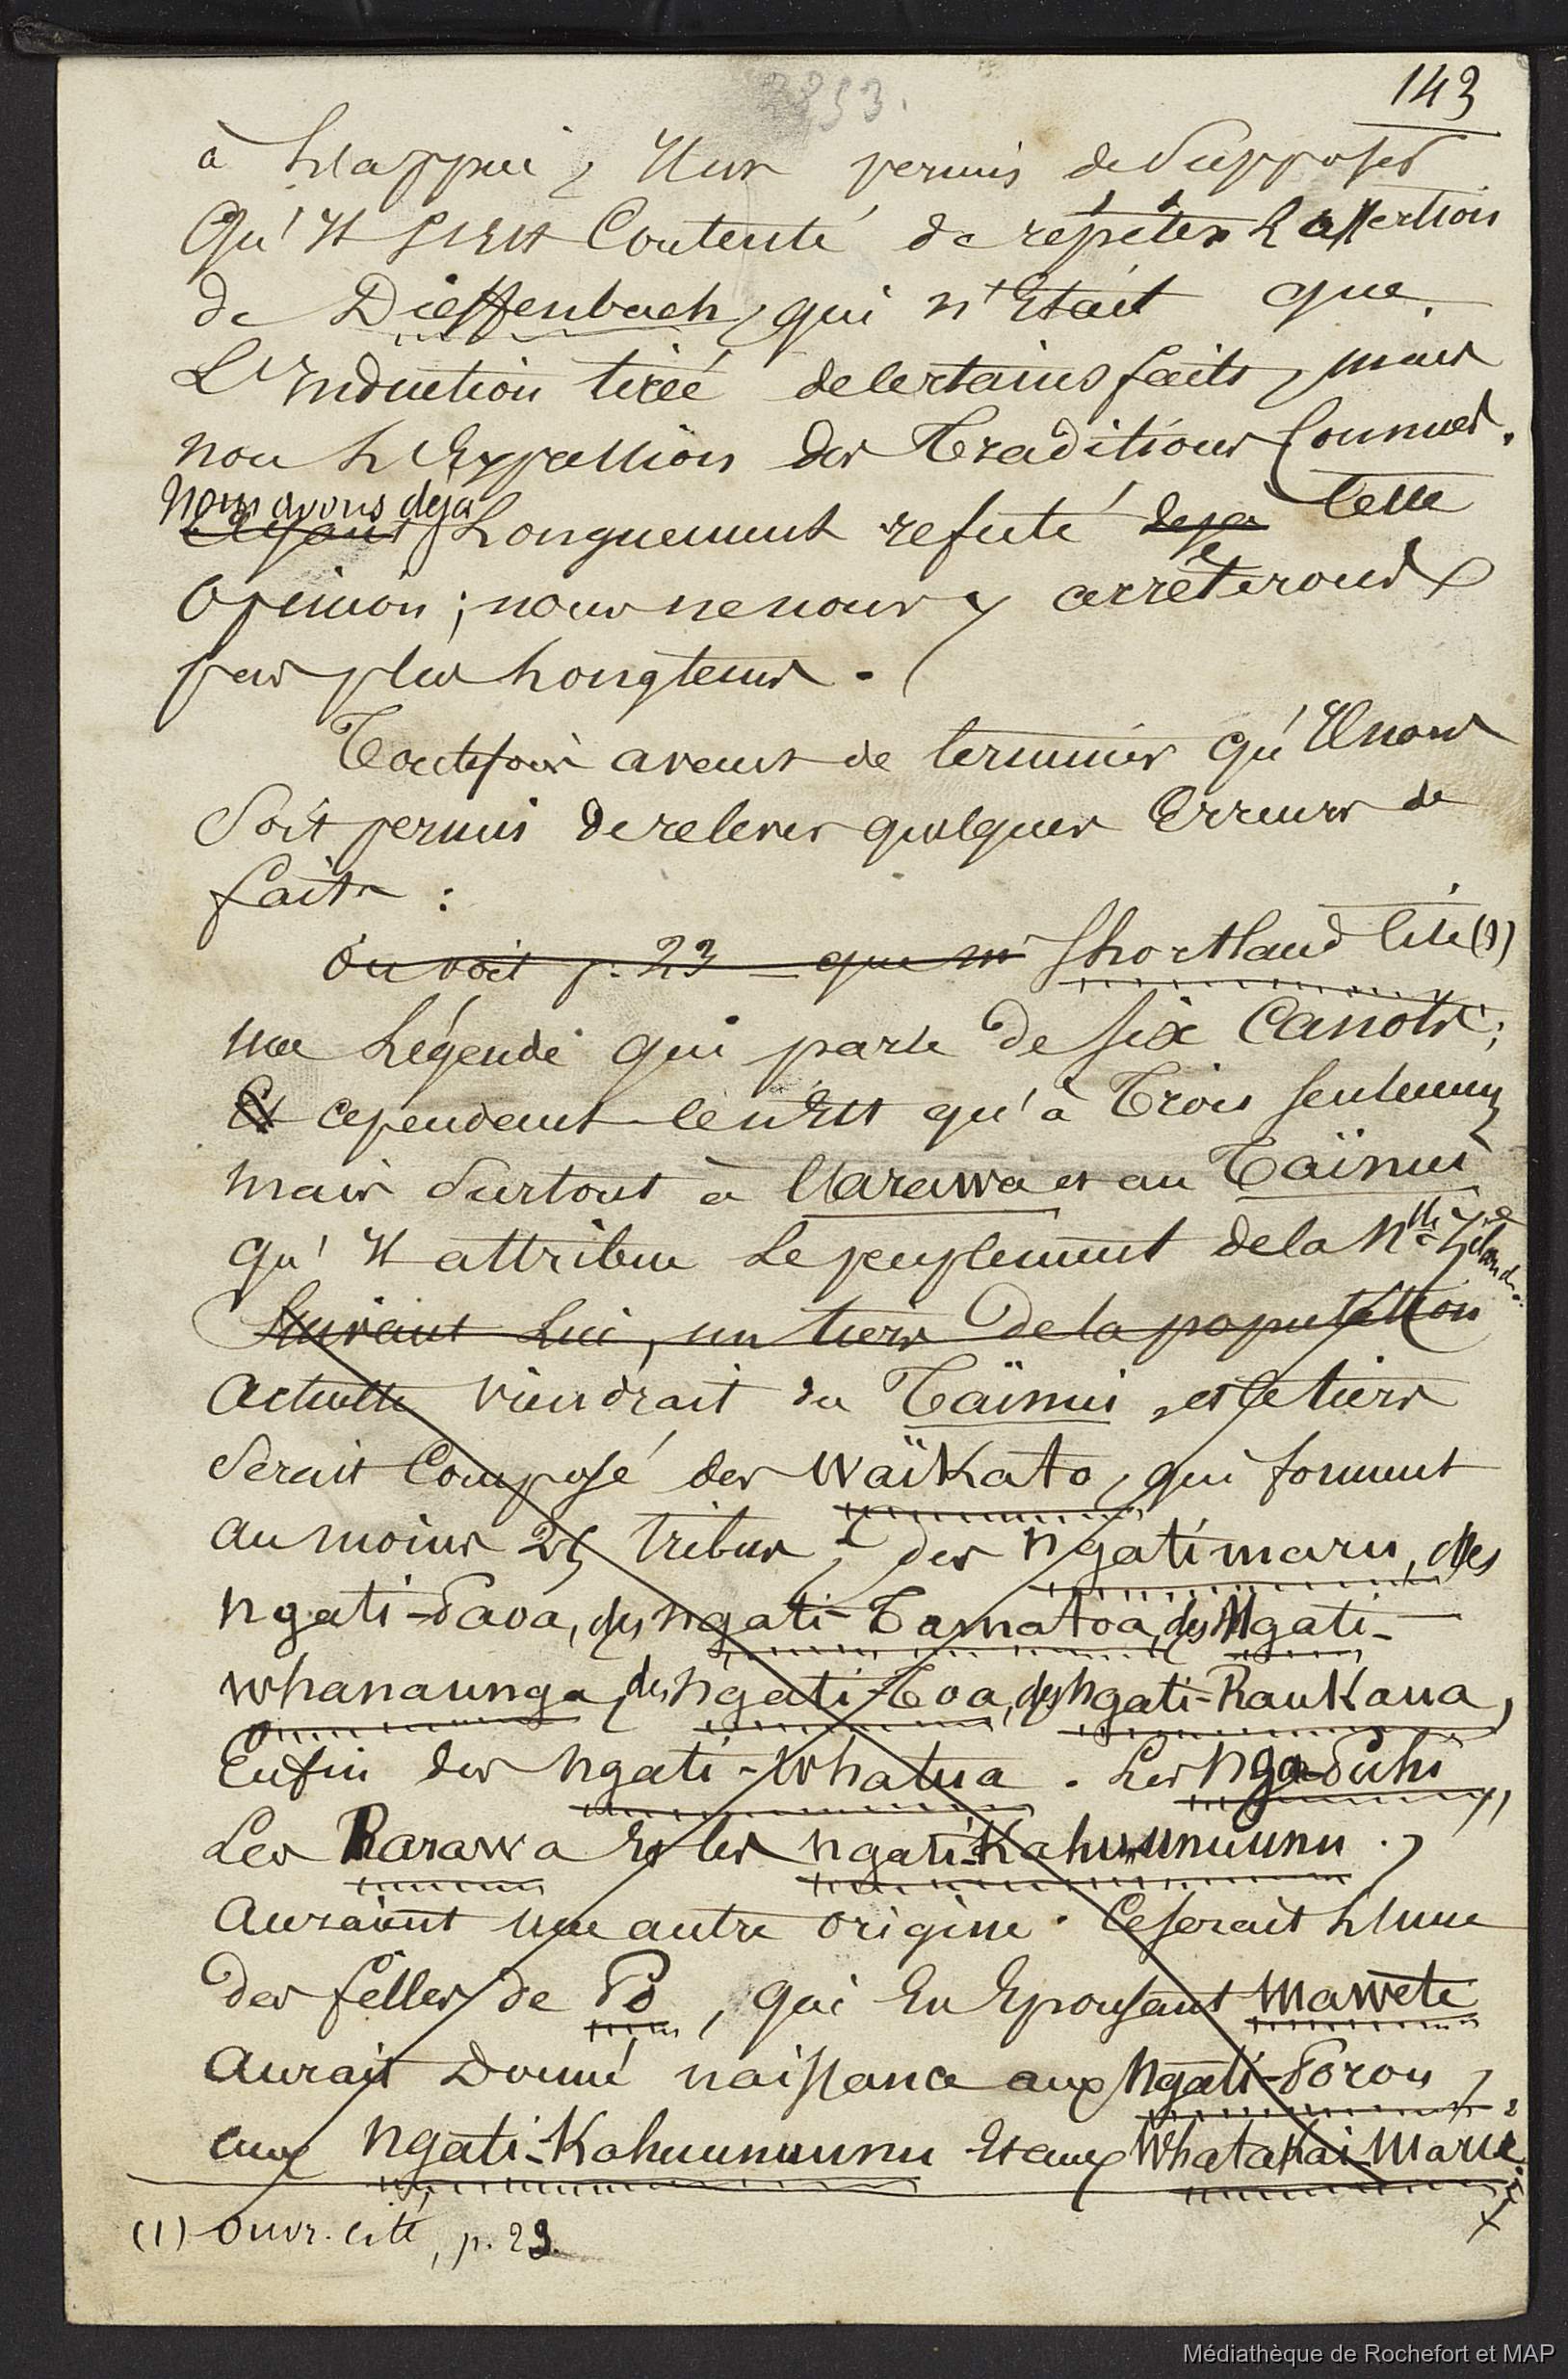 143
à l'appui, il est permis de supposer
Qu'il s'est contenté de répéter l'assertion
de Dieffenbach, qui n'était que
L'induction tirée de certains faits, mais
non l'expression des Traditions connues.
Nous avons déjà
Ayant longuement refuté deja cette
opinion; nous ne nous y arrêterons
pas plus longtems.
Toutefois avant de terminer qu'il nous
soit permis de relever quelques erreurs de
faits :
on voit p. 23 que Mr Shortland cite (1)
une Légende qui parle de six Canots;
Et cependant ce n'est qu'à Trois seulement
mais surtout à l'Arawa et au Taïnui
qu'il attribue le peuplement de la Nlle Zélande.
Suivant lui, un tiers de la population
actuelle viendrait du Taïnui, et ce tiers
serait composé des Waïkato, qui forment
au moins 25 tribus, des Ngatimaru, des
Ngati-Paoa, des Ngati-Tamatoa, des Ngati-
Whanaunga, des Ngati-Toa, des Ngati-Raukaua,
Enfin des Ngati-Whatua. Les Nga-Puhi,
Les Rarawa et les Ngati-Kahuunuunu,
auraient une autre origine. Ce serait l'une
des filles de Po, qui en épousant Mawete
aurait donné naissance aux Ngati-Porou,
aux Ngati-Kahuunuunu et aux Whatakai-Marie
(1) Ouvr. cité, p. 23.
Médiathèque de Rochefort et MAP